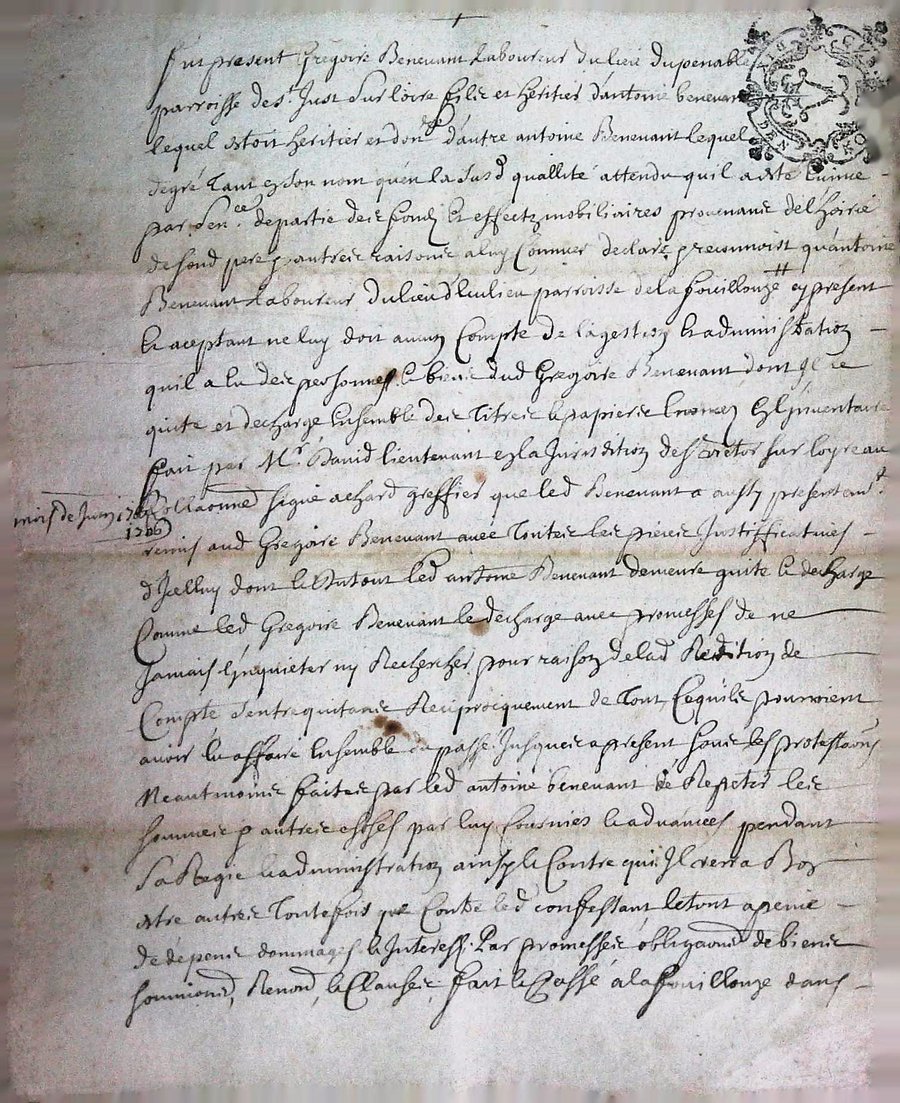 Fut present Gregoire Benevant Laboureur du lieu du penable
parroisse de st Just sur loire fils et heritier d'antoine benevant
lequel estoit heritier et don.re d'autre antoine Benevant lequel
degré tant en son nom qu'en la susd quallité attendu qu'il a esté
par Sen.ce de partie des fondz et effectz mobiliaires provenans de l'hoirie
de sond pere & autres raisons a luy Connues declare & reconnoist qu'antoine
Benevant Laboureur du lieu parroisse de la fouillouze cy present
et aceptant ne luy doit aucun Compte de la gestion et administration
quil a eu des personnes et biens dud Gregoire Benevant dont Il le
quite et decharge Ensemble des Titres et papiers Enoncez En l'inventaire
fait par M.r David lieutenant en la Jurisdition de st victor sur loyre au
mois de Juin
1706
signé achard greffier que led Benevant a aussy presentem.t
remis aud Gregoire Benevant avec Toutes les pieces Justifficatives
d'Icelluy dont led antoine Benevant demeure quite et decharge
Comme led Gregoire Benevant le decharge avec promesses de ne
Jamais l'inquieter ny Rechercher pour raison de lad Reddition de
Compte s'entrequitans Reciprocquement de Tout Ce quils pourroient
avoir eu affaire Ensemble du passé Jusques a present sous les protestaons
Neantmoins faites par led antoine benevant de Repeter les
sommes & autres choses par luy fournies et advancées pendant
sa Regie et administration ainsy et Contre qui Il verra Bon
estre autres Toutefois que Contre led confessant le tout a peine
de depens dommages et Interestz Par promesses obligaons de biens
soumions, Renons, et Clauses, fait et Passé a la fouillouze dans